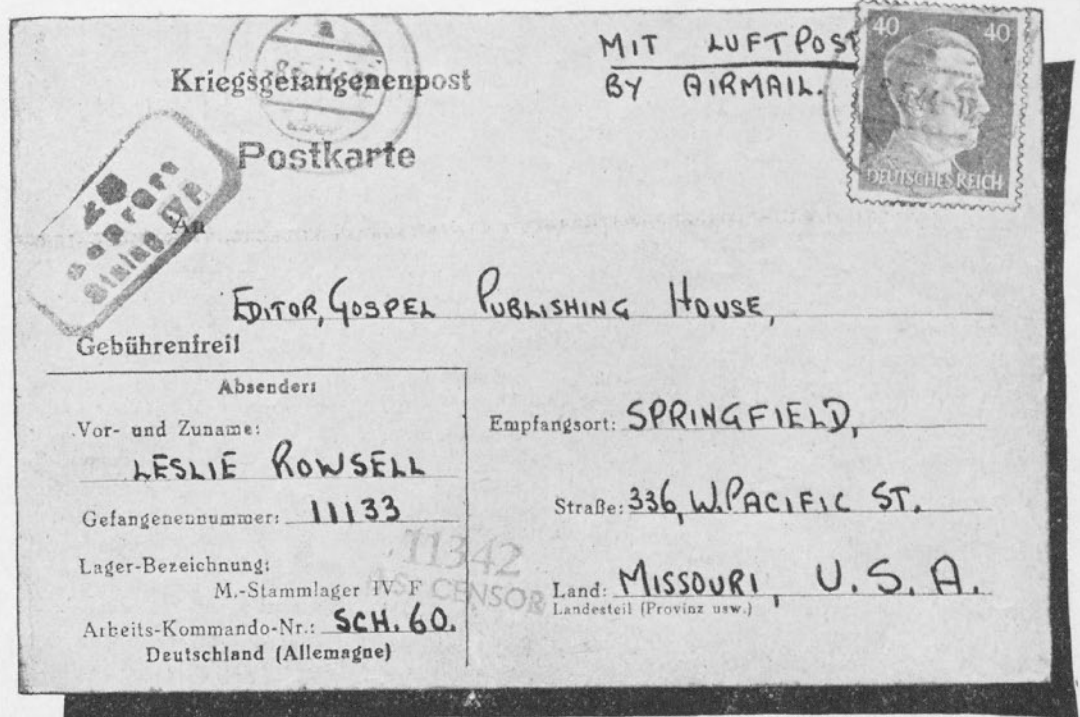 MIT LUFTPOST
BY AIRMAIL.
40 40
DEUTSCHES REICH
Kriegsgefangenenpost
Postkarte
An
EDITOR, GOSPEL PUBLISHING HOUSE,
Gebührenfrei!
Absender:
Vor- und Zuname:
LESLIE ROWSELL
Gefangenennummer: 11133
Lager-Bezeichnung:
M.-Stammlager IV F
Arbeits-Kommando-Nr.: SCH. 60.
Deutschland (Allemagne)
11342
CENSOR
Empfangsort: SPRINGFIELD,
Straße: 336, W. PACIFIC ST.
Land: MISSOURI, U. S. A.
Landesteil (Provinz usw.)